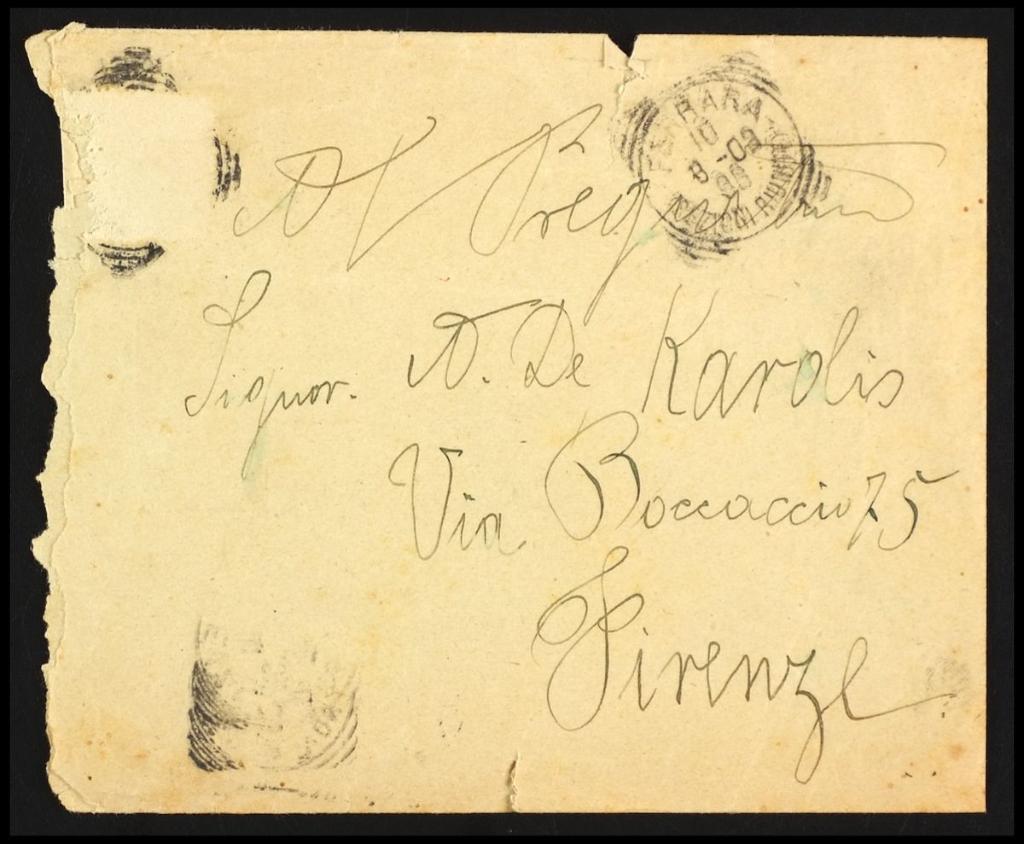 FERRARA
10
8-02
Al Preg
Signor. A. De Karolis
Via Boccaccio 75
Firenze